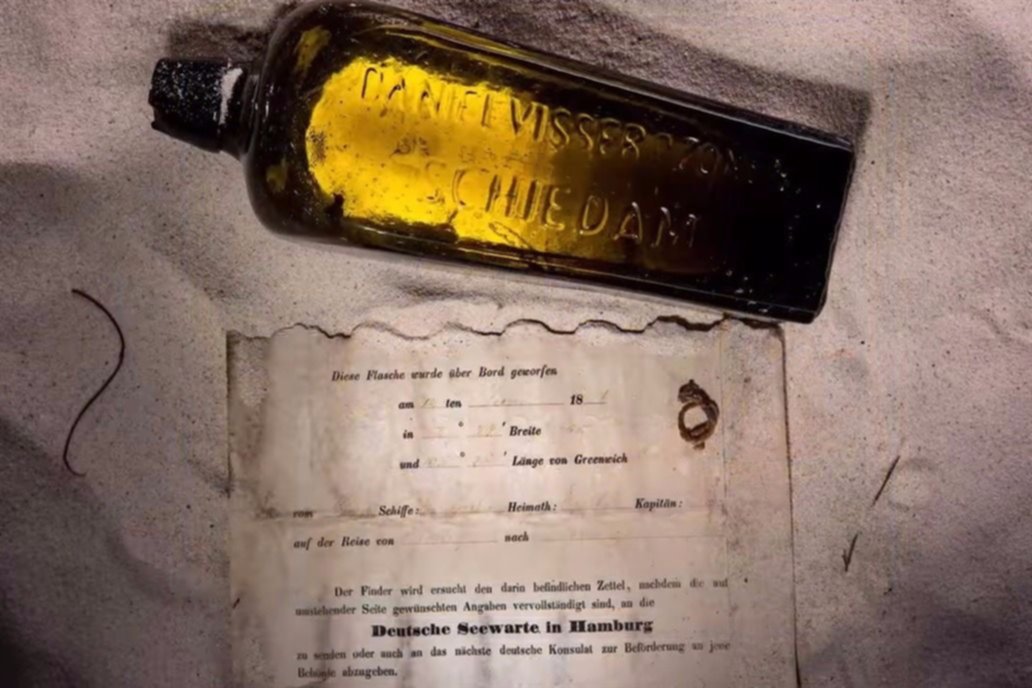 SCHIEDAM
Diese Flasche wurde über Bord geworfen
am ten 18
in ° ' Breite
und ° ' Länge von Greenwich
vom Schiffe: Heimath: Kapitän:
auf der Reise von nach
Der Finder wird ersucht den darin befindlichen Zettel, nachdem die auf
umstehender Seite gewünschten Angaben vervollständigt sind, an die
Deutsche Seewarte in Hamburg
zu senden oder auch an das nächste deutsche Konsulat zur Beförderung an jene
Behörde abzugeben.